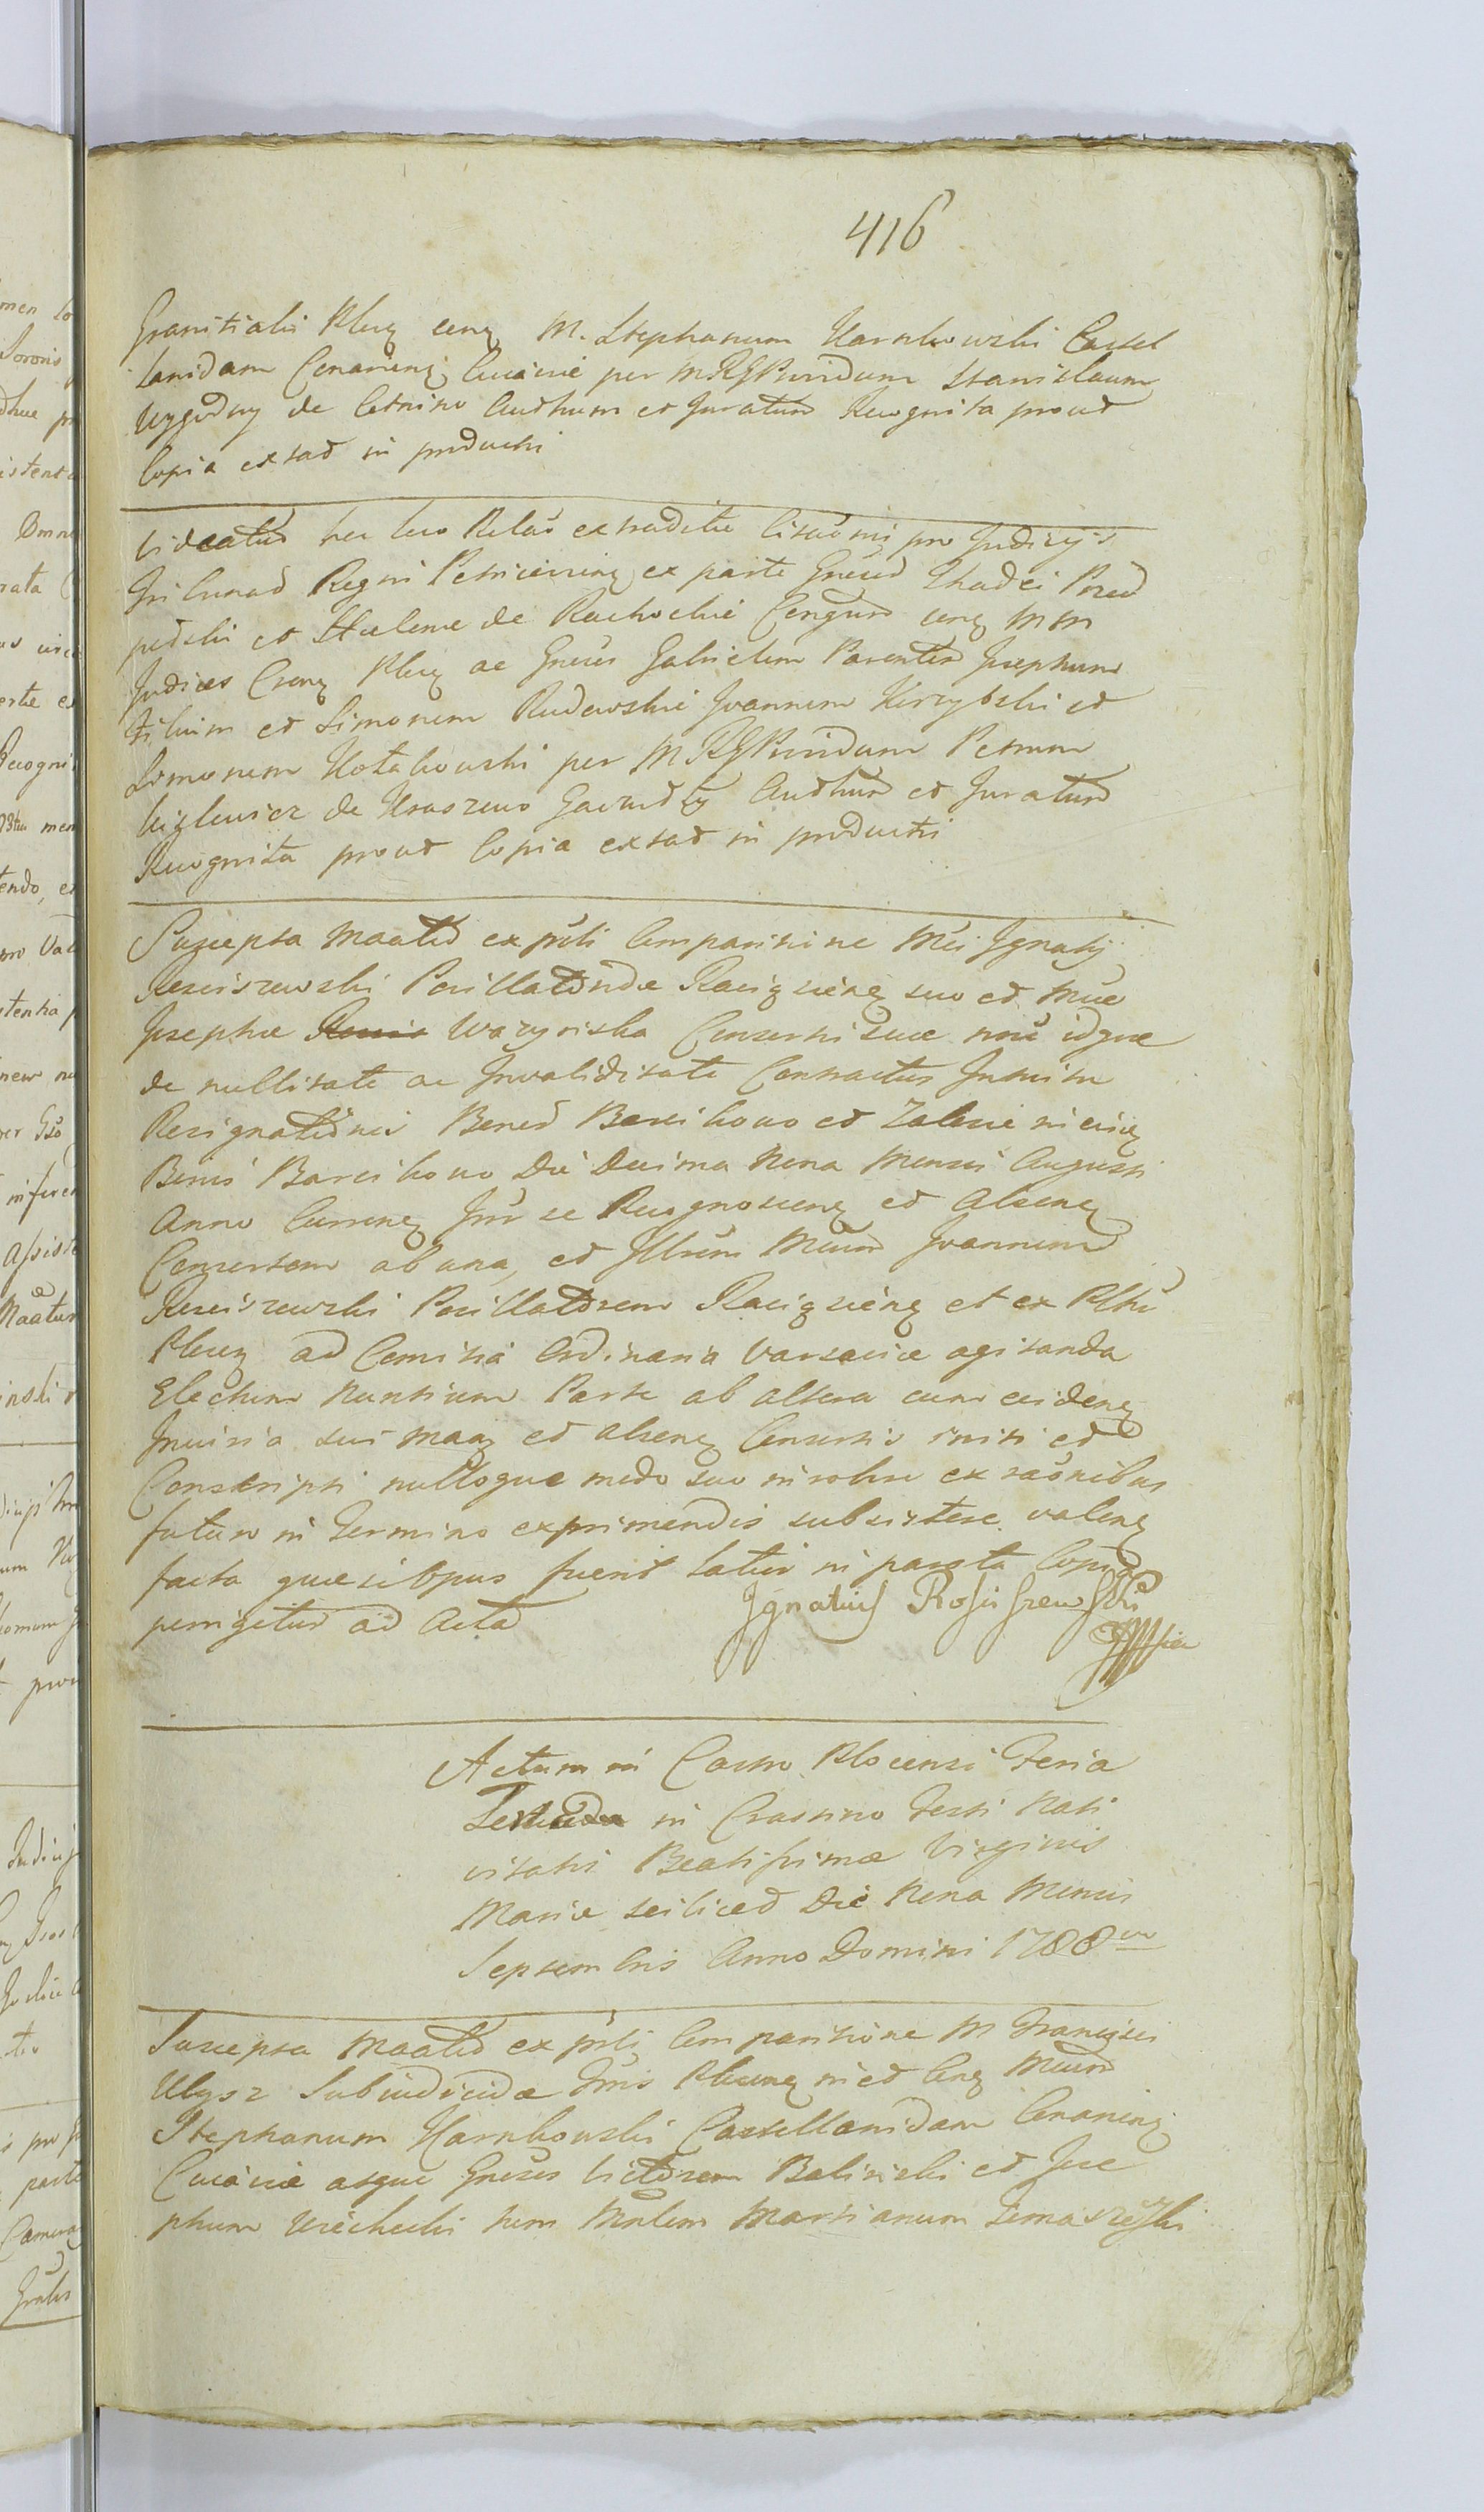 416
Granitialis Plocen ceng M. Stephanum Karnkowski Castel
lanidam Conarien Cujaviæ per MRGPrvidum Stanislaum
Wygodny de Cetnino Authum et Juratum Recognita prout
Copia extat in productis
Videatur hec loco Relao extraditæ Citaonis pro Judicijs
Tribunad Regni Petricovien ex parte Gnesd Thadei
et Helenæ de Conjgum ceng MM
Judices Plocen ac Gnesos Gabrielem Parentem Josephum
Filium et Simonem Rudowskie Joannem Kirzybski et
Simonem Kotakowski per MRGPrvidum Petrum
de Kraszewo Gawudzy Authum et Juratum
Recognita prout Copia extat in productis
Suscepta Maatio ex psti Comparitione Mci Ignatij
Resciszewski Pocillatoridæ Raciązien suo et Mcæ
Josephæ Wazynska Consortis suæ noie idque
de nullitate ac Invalidatate Contractus Intuitu
Resignationis Bonod Barcikowo et Zalesie
Bonis Barcikowo Die Decima Nona Mensis Augusti
Anno Curren Inr se Recognoscen et absen
Consortem ab una, et Illrum Mcum Joannem
Resciszewski Pocillatorem Raciązien et ex Pltu
Plocen ad Comitia Ordinaria Varsaviæ agitanda
Electum Nuntium Parte ab altera cum eviden
Injuria sui Maan et absen Consortis initi et
Conscripti nulloque modo suo in robore ex raonibus
futuro in Termino exprimendis subsistere valen
facta quæsi opus fuerit latius in parata Copia
porrigetur ad Acta
Ignatius Rosciszewski
Actum in Castro Plocensi Feria
Tertia in Crastino Festi Nati
vitatis Beatissimæ Virginis
Mariæ scilicet Die Nona Mensis
Septembris Anno Domini 1788vo
Suscepta Maatio ex psti Comparitione M Francisci
Ulysz Subiudicidæ Tris Plocen Mcum
Stephanum Karnkowski Castellanidam Conarien
Cujaviæ atque Gnesos Victorem Balinski et Jose
phum tum Mnlem Martianum